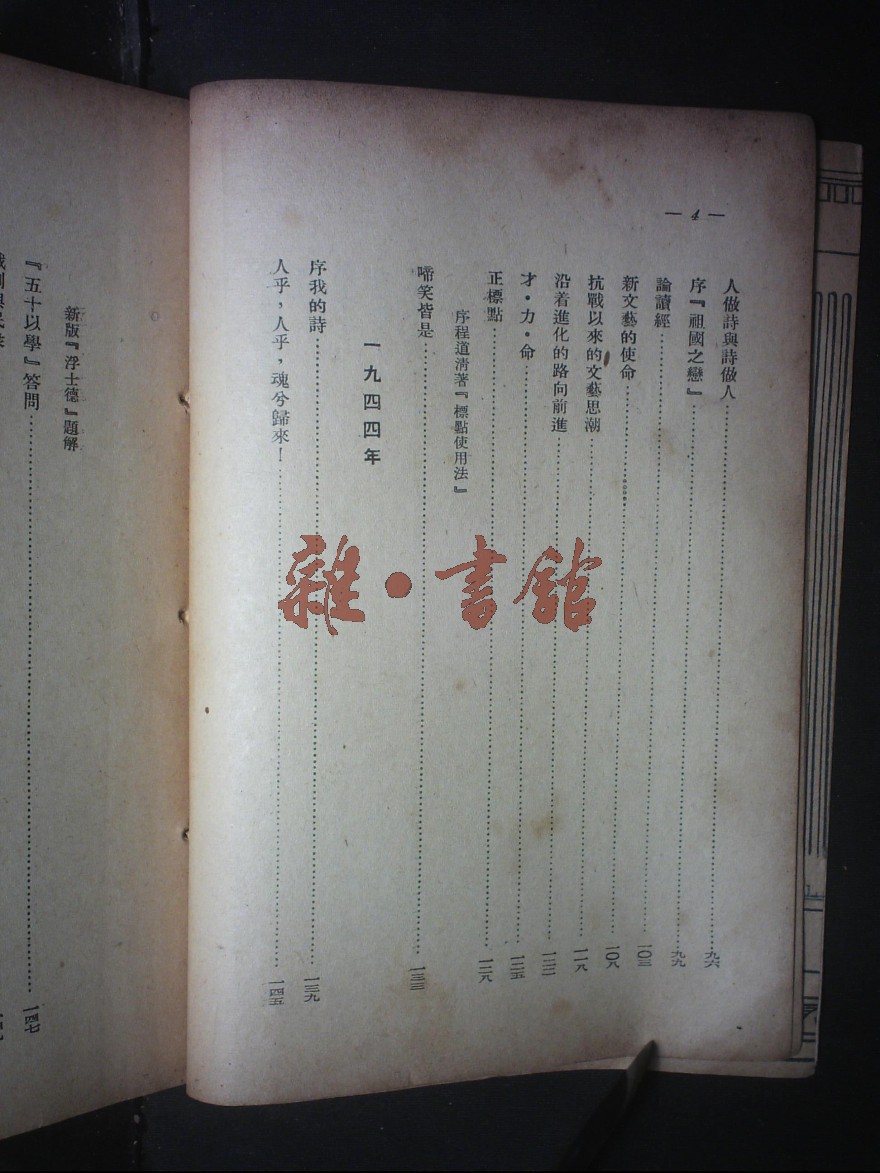 — 4 —
人做詩與詩做人……九六
序『祖國之戀』……九九
論讀經……一〇三
新文藝的使命……一〇八
抗戰以來的文藝思潮……一一八
沿着進化的路向前進……一二二
才・力・命……一二五
正標點……一二八
序程道清著『標點使用法』
啼笑皆是……一三三
一九四四年
序我的詩……一三九
人乎，人乎，魂兮歸來！……一四五
新版『浮士德』題解
『五十以學』答問……一四七
雜・書館